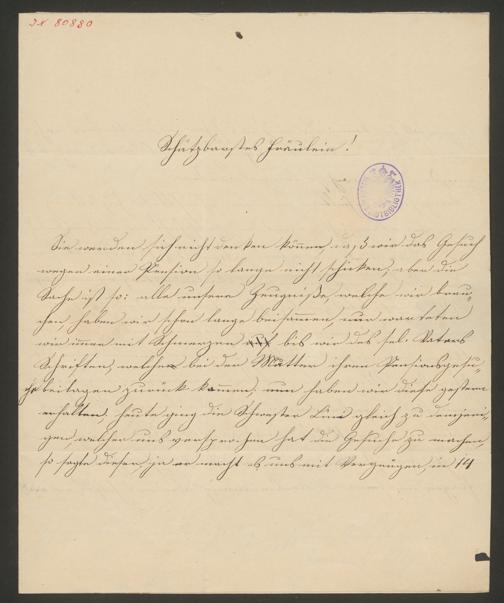 I.N. 80880
Schätzbarstes Fräulein!
Sie werden sich nicht denken können, daß wir das Gesuch
wegen einer Pension so lange nicht schicken, aber die
Sache ist so: alle unsere Zeugniße, welche wir brau-
chen, haben wir schon lange beisammen, nur warteten
wir immer mit Schmerzen bis wir des sel. Vaters
Schriften, welche bei der Mutter ihren Pensionsgesu-
che beilagen zurück kommen, nun haben wir diese gestern
erhalten. heute ging die Schwester gleich zu demjeni-
gen welcher uns versprochen hat die Gesuche zu machen,
so sagte dieser, ja er macht es uns mit Vergnügen, in 14